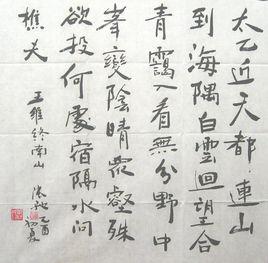 太乙近天都連山
到海隅白雲迴望合
青靄入看無分野中
峯變陰晴衆壑殊
欲投何處宿隔水問
樵夫
王維終南山
乙酉初夏